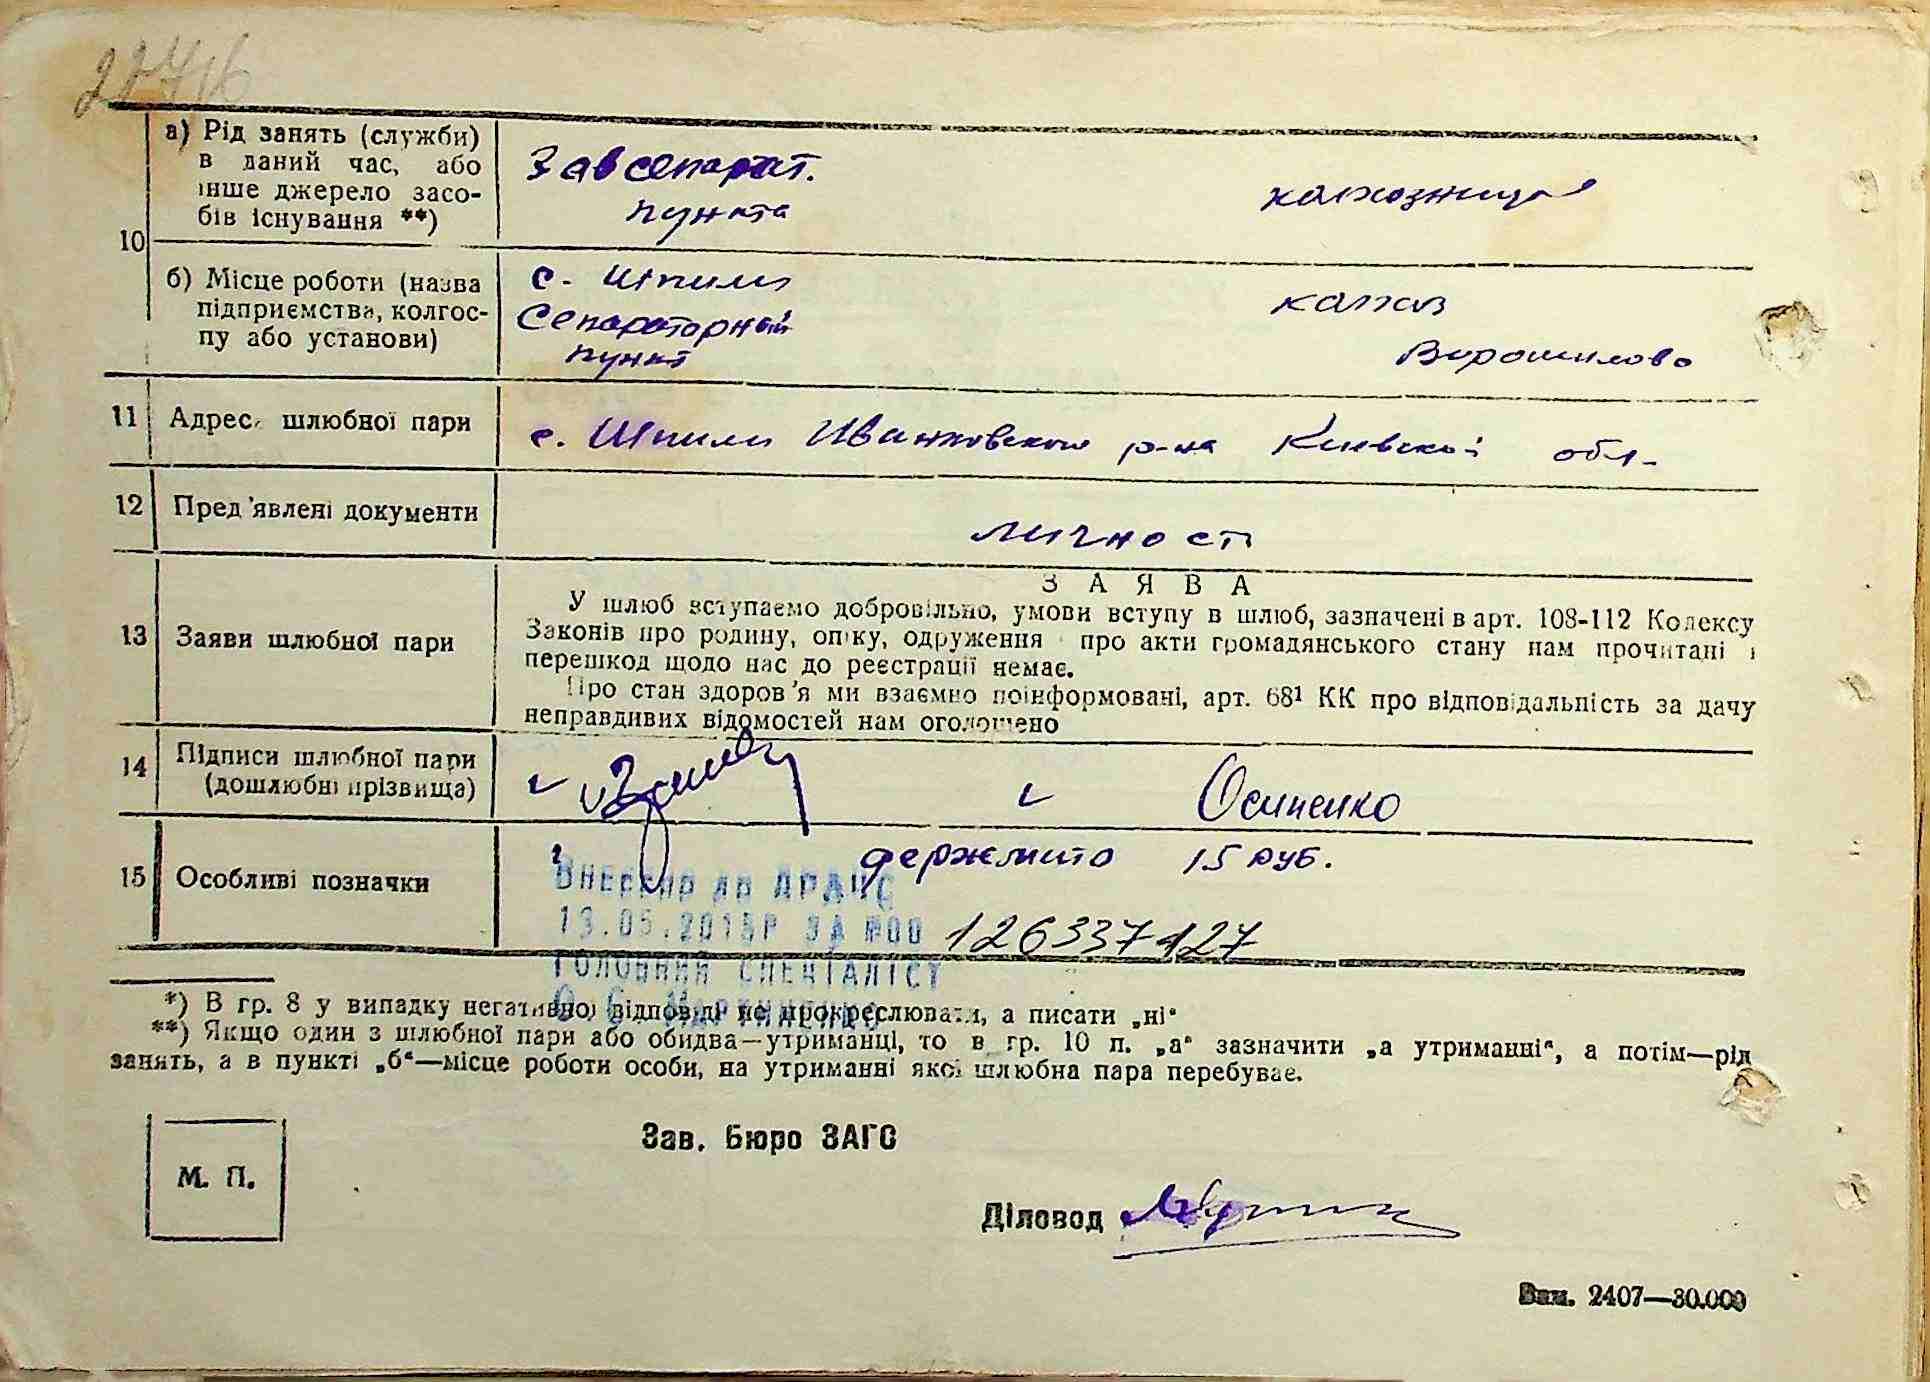 а) Рід занять (служби)
в даний час, або
інше джерело засо-
бів існування **)
Завсепарат.
пункта
колхозница
10
б) Місце роботи (назва
підприємства, колгос-
пу або установи)
с. Шпили
Сепараторный
пункт
колхоз
Ворошилова
11 Адрес шлюбної пари
с. Шпили Иванковского р-на Киевской обл.
12 Пред'явлені документи
личност
13 Заяви шлюбної пари
ЗАЯВА
У шлюб вступаємо добровільно, умови вступу в шлюб, зазначені в арт. 108-112 Кодексу
Законів про родину, опіку, одруження про акти громадянського стану нам прочитані і
перешкод щодо нас до реєстрації немає.
Про стан здоров'я ми взаємно поінформовані, арт. 68¹ КК про відповідальність за дачу
неправдивих відомостей нам оголошено
14 Підписи шлюбної пари
(дошлюбні прізвища)
Осипенко
15 Особливі позначки
держмито 15 руб.
Внесено до ДРАЦС
13.05.2015р за №00 126337427
Головний спеціаліст
*) В гр. 8 у випадку негативної відповіді не прокреслювати, а писати „ні“
**) Якщо один з шлюбної пари або обидва—утриманці, то в гр. 10 п. „а“ зазначити „а утриманні“, а потім—рід
занять, а в пункті „б“—місце роботи особи, на утриманні якої шлюбна пара перебуває.
Зав. Бюро ЗАГС
М. П.
Діловод
Зам. 2407—30.000